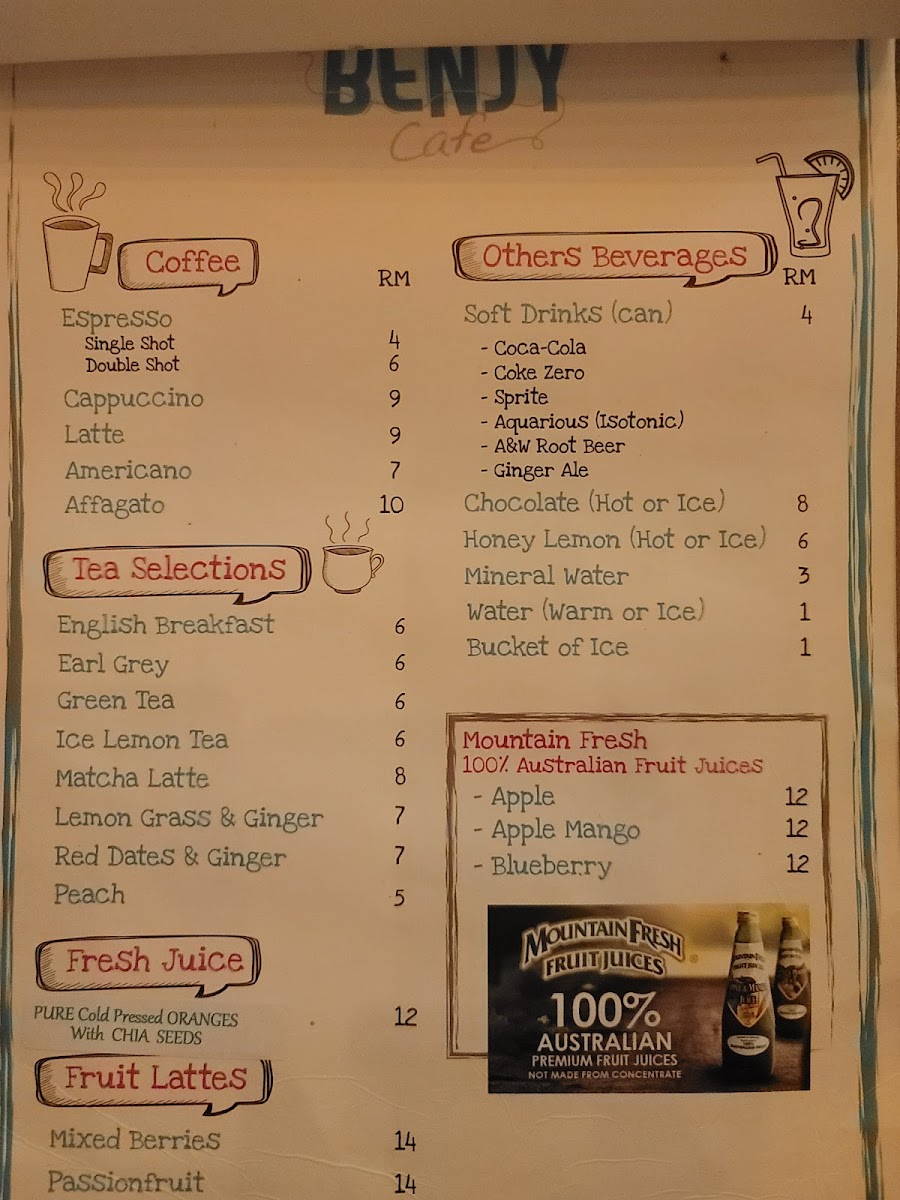 BENJY
Cafe
Coffee
RM
Espresso
Single Shot 4
Double Shot 6
Cappuccino 9
Latte 9
Americano 7
Affagato 10
Tea Selections
English Breakfast 6
Earl Grey 6
Green Tea 6
Ice Lemon Tea 6
Matcha Latte 8
Lemon Grass & Ginger 7
Red Dates & Ginger 7
Peach 5
Fresh Juice
PURE Cold Pressed ORANGES
With CHIA SEEDS 12
Fruit Lattes
Mixed Berries 14
Passionfruit 14
Others Beverages
RM
Soft Drinks (can) 4
- Coca-Cola
- Coke Zero
- Sprite
- Aquarious (Isotonic)
- A&W Root Beer
- Ginger Ale
Chocolate (Hot or Ice) 8
Honey Lemon (Hot or Ice) 6
Mineral Water 3
Water (Warm or Ice) 1
Bucket of Ice 1
Mountain Fresh
100% Australian Fruit Juices
- Apple 12
- Apple Mango 12
- Blueberry 12
MOUNTAIN FRESH
FRUIT JUICES
100%
AUSTRALIAN
PREMIUM FRUIT JUICES
NOT MADE FROM CONCENTRATE